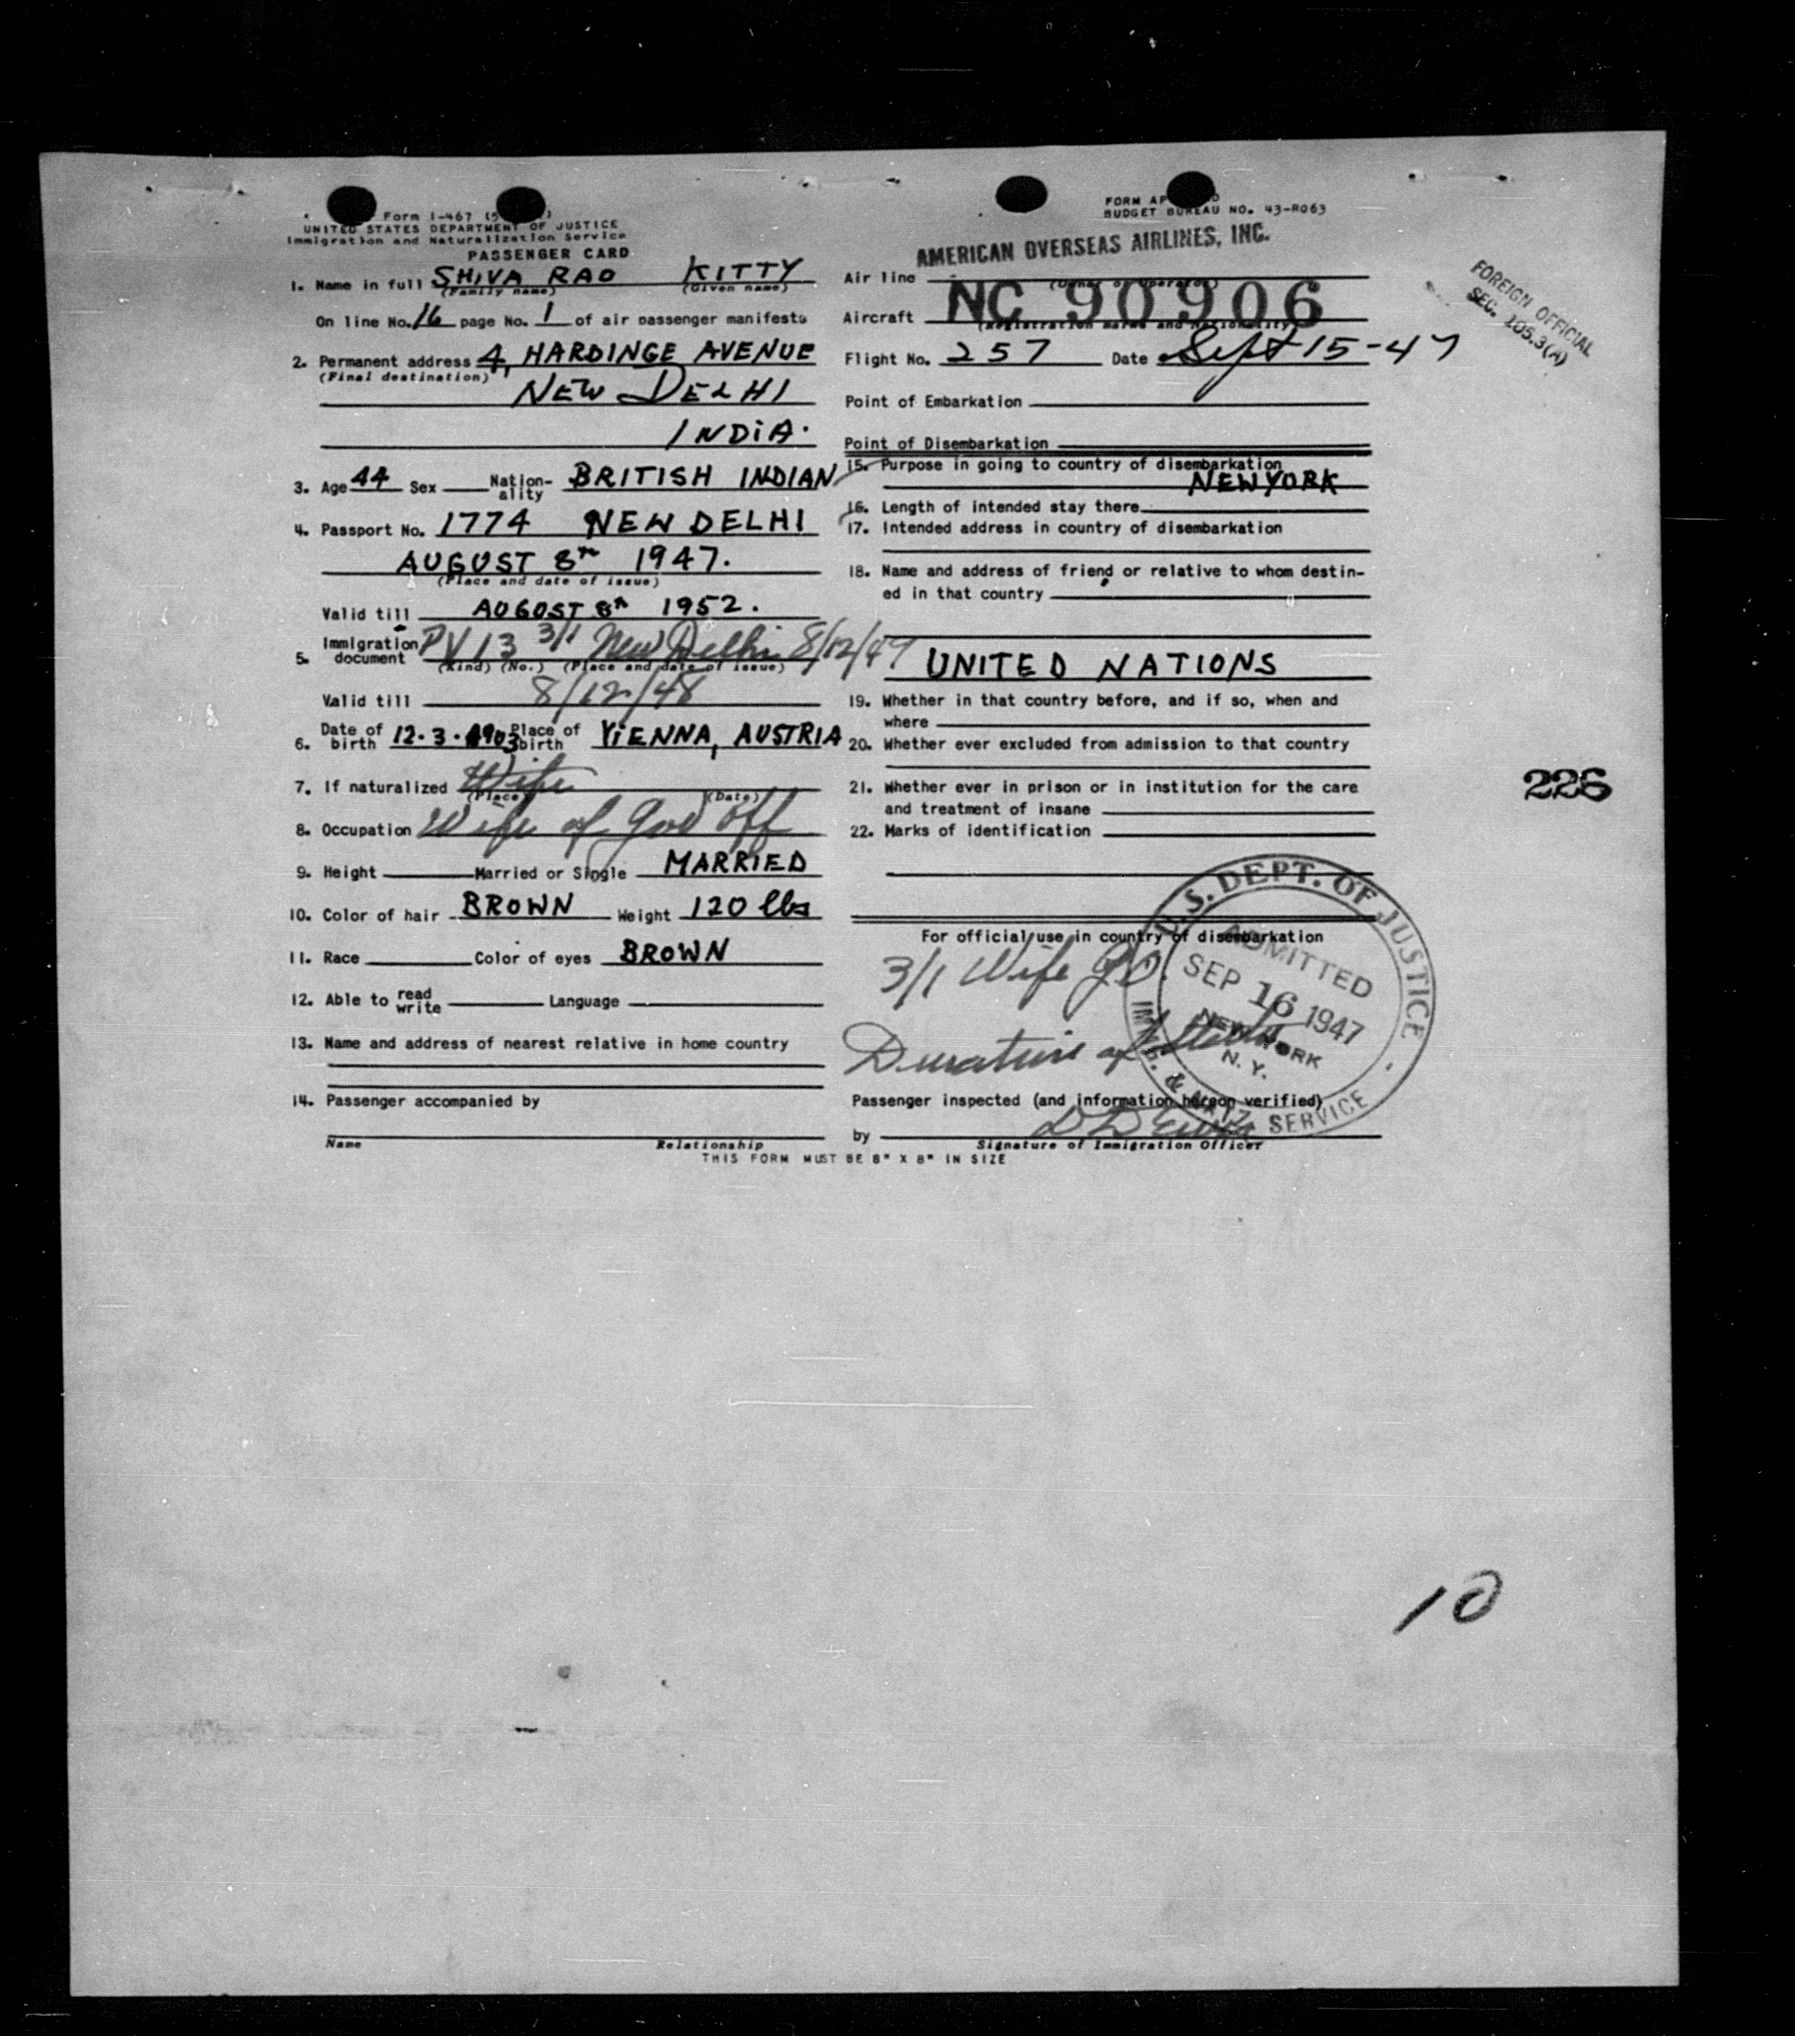 Form I-467
UNITED STATES DEPARTMENT OF JUSTICE
Immigration and Naturalization Service
PASSENGER CARD
1. Name in full SHIVA RAO KITTY
(Family name) (Given name)
On line No. 16 page No. 1 of air passenger manifest
2. Permanent address 4, HARDINGE AVENUE
(Final destination)
NEW DELHI
INDIA.
3. Age 44 Sex Nation-ality BRITISH INDIAN
4. Passport No. 1774 NEW DELHI
AUGUST 8TH 1947.
(Place and date of issue)
Valid till AUGUST 8TH 1952.
5. Immigration document PV 13 3/1 New Delhi 8/12/47
(Kind) (No.) (Place and date of issue)
Valid till 8/12/48
6. Date of birth 12.3.1903 Place of birth VIENNA, AUSTRIA
7. If naturalized Wife
(Place) (Date)
8. Occupation Wife of Gov Off
9. Height Married or Single MARRIED
10. Color of hair BROWN Weight 120 lbs
11. Race Color of eyes BROWN
12. Able to read write Language
13. Name and address of nearest relative in home country
14. Passenger accompanied by
Name Relationship
THIS FORM MUST BE 8" X 8" IN SIZE
FORM
BUDGET BUREAU NO. 43-R063
AMERICAN OVERSEAS AIRLINES, INC.
Air line
(Owner or Operator)
Aircraft NC 90906
(Registration marks and Nationality)
Flight No. 257 Date Sept 15-47
Point of Embarkation
Point of Disembarkation
15. Purpose in going to country of disembarkation
NEW YORK
16. Length of intended stay there
17. Intended address in country of disembarkation
18. Name and address of friend or relative to whom destin-
ed in that country
UNITED NATIONS
19. Whether in that country before, and if so, when and
where
20. Whether ever excluded from admission to that country
21. Whether ever in prison or in institution for the care
and treatment of insane
22. Marks of identification
For official use in country of disembarkation
3/1 Wife G.O.
Duration of Status
U.S. DEPT. OF JUSTICE
ADMITTED
SEP 16 1947
NEW YORK
N. Y.
IMMIG. & NATZ. SERVICE
Passenger inspected (and information hereon verified)
by
Signature of Immigration Officer
FOREIGN OFFICIAL
SEC. 105.3(A)
226
10